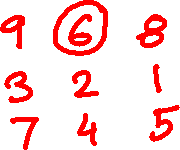 9 6 8
3 2 1
7 4 5